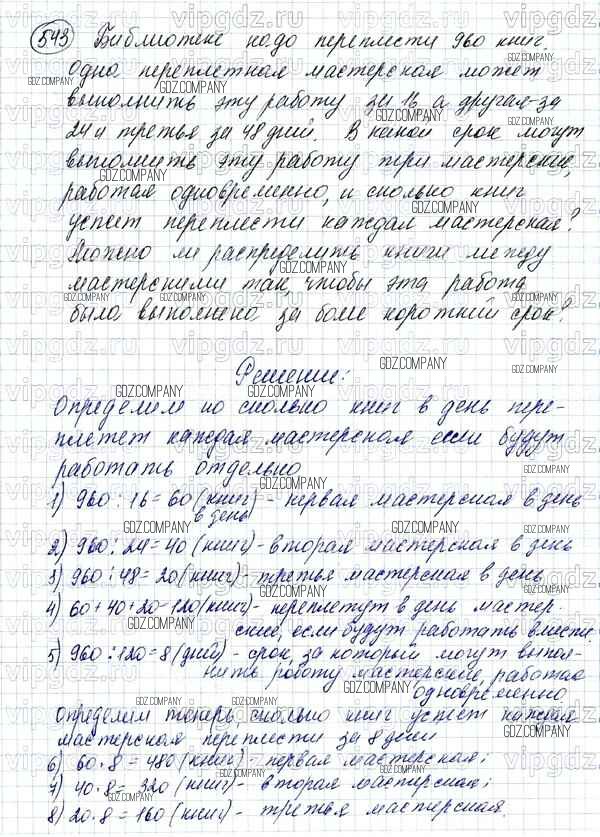 543 Библиотеке надо переплести 960 книг.
Одна переплетная мастерская может
выполнить эту работу за 16 а другая-за
24 и третья за 48 дней. В какой срок могут
выполнить эту работу три мастерские,
работая одновременно, и сколько книг
успеет переплести каждая мастерская?
Можно ли распределить книги между
мастерскими так, чтобы эта работа
была выполнена за более короткий срок?
Решение:
Определим по сколько книг в день пере-
плетет каждая мастерская если будут
работать отдельно
1) 960 : 16 = 60 (книг) - первая мастерская в день
в день
2) 960 : 24 = 40 (книг) - вторая мастерская в день
3) 960 : 48 = 20 (книг) - третья мастерская в день
4) 60 + 40 + 20 = 120 (книг) - переплетут в день мастер-
ские, если будут работать вместе.
5) 960 : 120 = 8 (дней) - срок, за который могут выпол-
нить работу мастерские, работая
одновременно
Определим теперь, сколько книг успеет каждая
мастерская переплести за 8 дней
6) 60 · 8 = 480 (книг) - первая мастерская;
7) 40 · 8 = 320 (книг) - вторая мастерская;
8) 20 · 8 = 160 (книг) - третья мастерская.
vipgdz.ru
GDZ.COMPANY